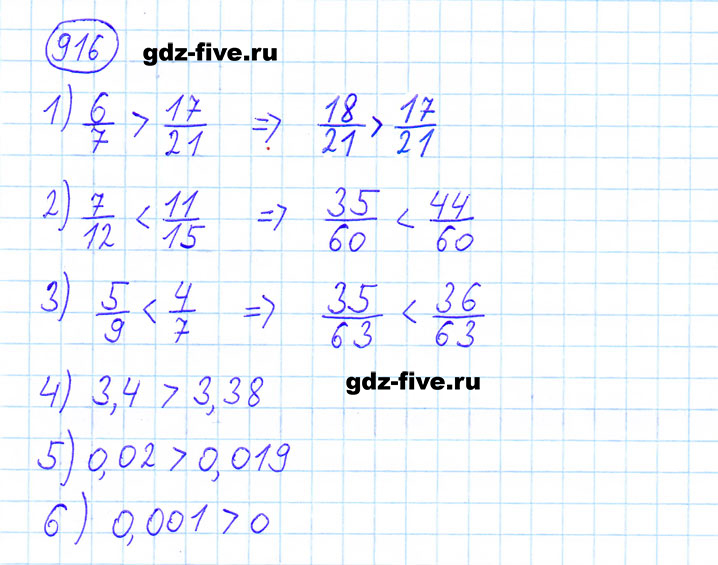 916 gdz-five.ru
1) 6/7 > 17/21 => 18/21 > 17/21
2) 7/12 < 11/15 => 35/60 < 44/60
3) 5/9 < 4/7 => 35/63 < 36/63
4) 3,4 > 3,38 gdz-five.ru
5) 0,02 > 0,019
6) 0,001 > 0